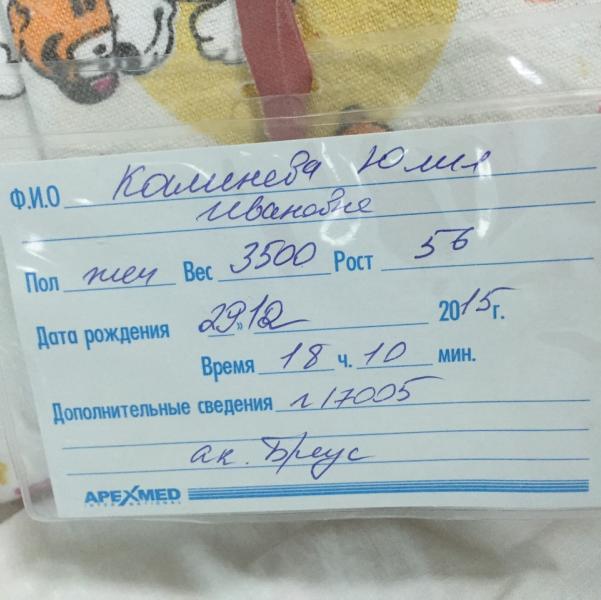 Ф.И.О Каменева Юлия
Ивановне
Пол жен Вес 3500 Рост 56
Дата рождения 29 » 12 2015 г.
Время 18 ч. 10 мин.
Дополнительные сведения 17005
ак. Бреус
APEXMED
INTERNATIONAL